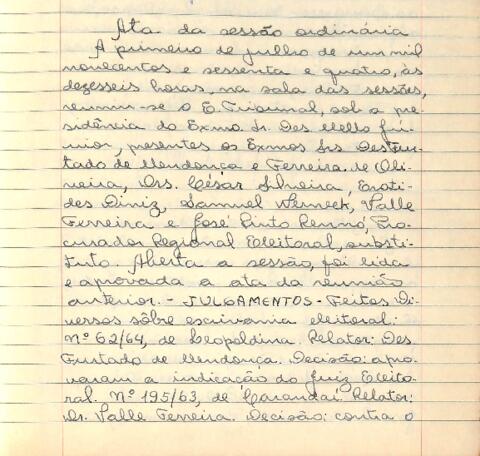 Ata da sessão ordinária
A primeiro de julho de um mil
novecentos e sessenta e quatro, às
dezesseis horas, na sala das sessões,
reuniu-se o E. Tribunal, sob a pre-
sidência do Exmo. Sr. Des. Mello Jú-
nior, presentes os Exmos Srs Des Fur-
tado de Mendonça e Ferreira de Oli-
veira, Drs. César Silveira, Eurí-
des Diniz, Samuel Werneck, Valle
Ferreira e José Pinto Rennó, Pro-
curador Regional Eleitoral, substi-
tuto. Aberta a sessão, foi lida
e aprovada a ata da reunião
anterior. - JULGAMENTOS - Feitos Di-
versos sôbre escrivania eleitoral:
Nº 62/64, de Leopoldina. Relator: Des.
Furtado de Mendonça. Decisão: apro-
varam a indicação do Juiz Eleito-
ral. Nº 195/63, de Carandaí. Relator:
Dr. Valle Ferreira. Decisão: contra o